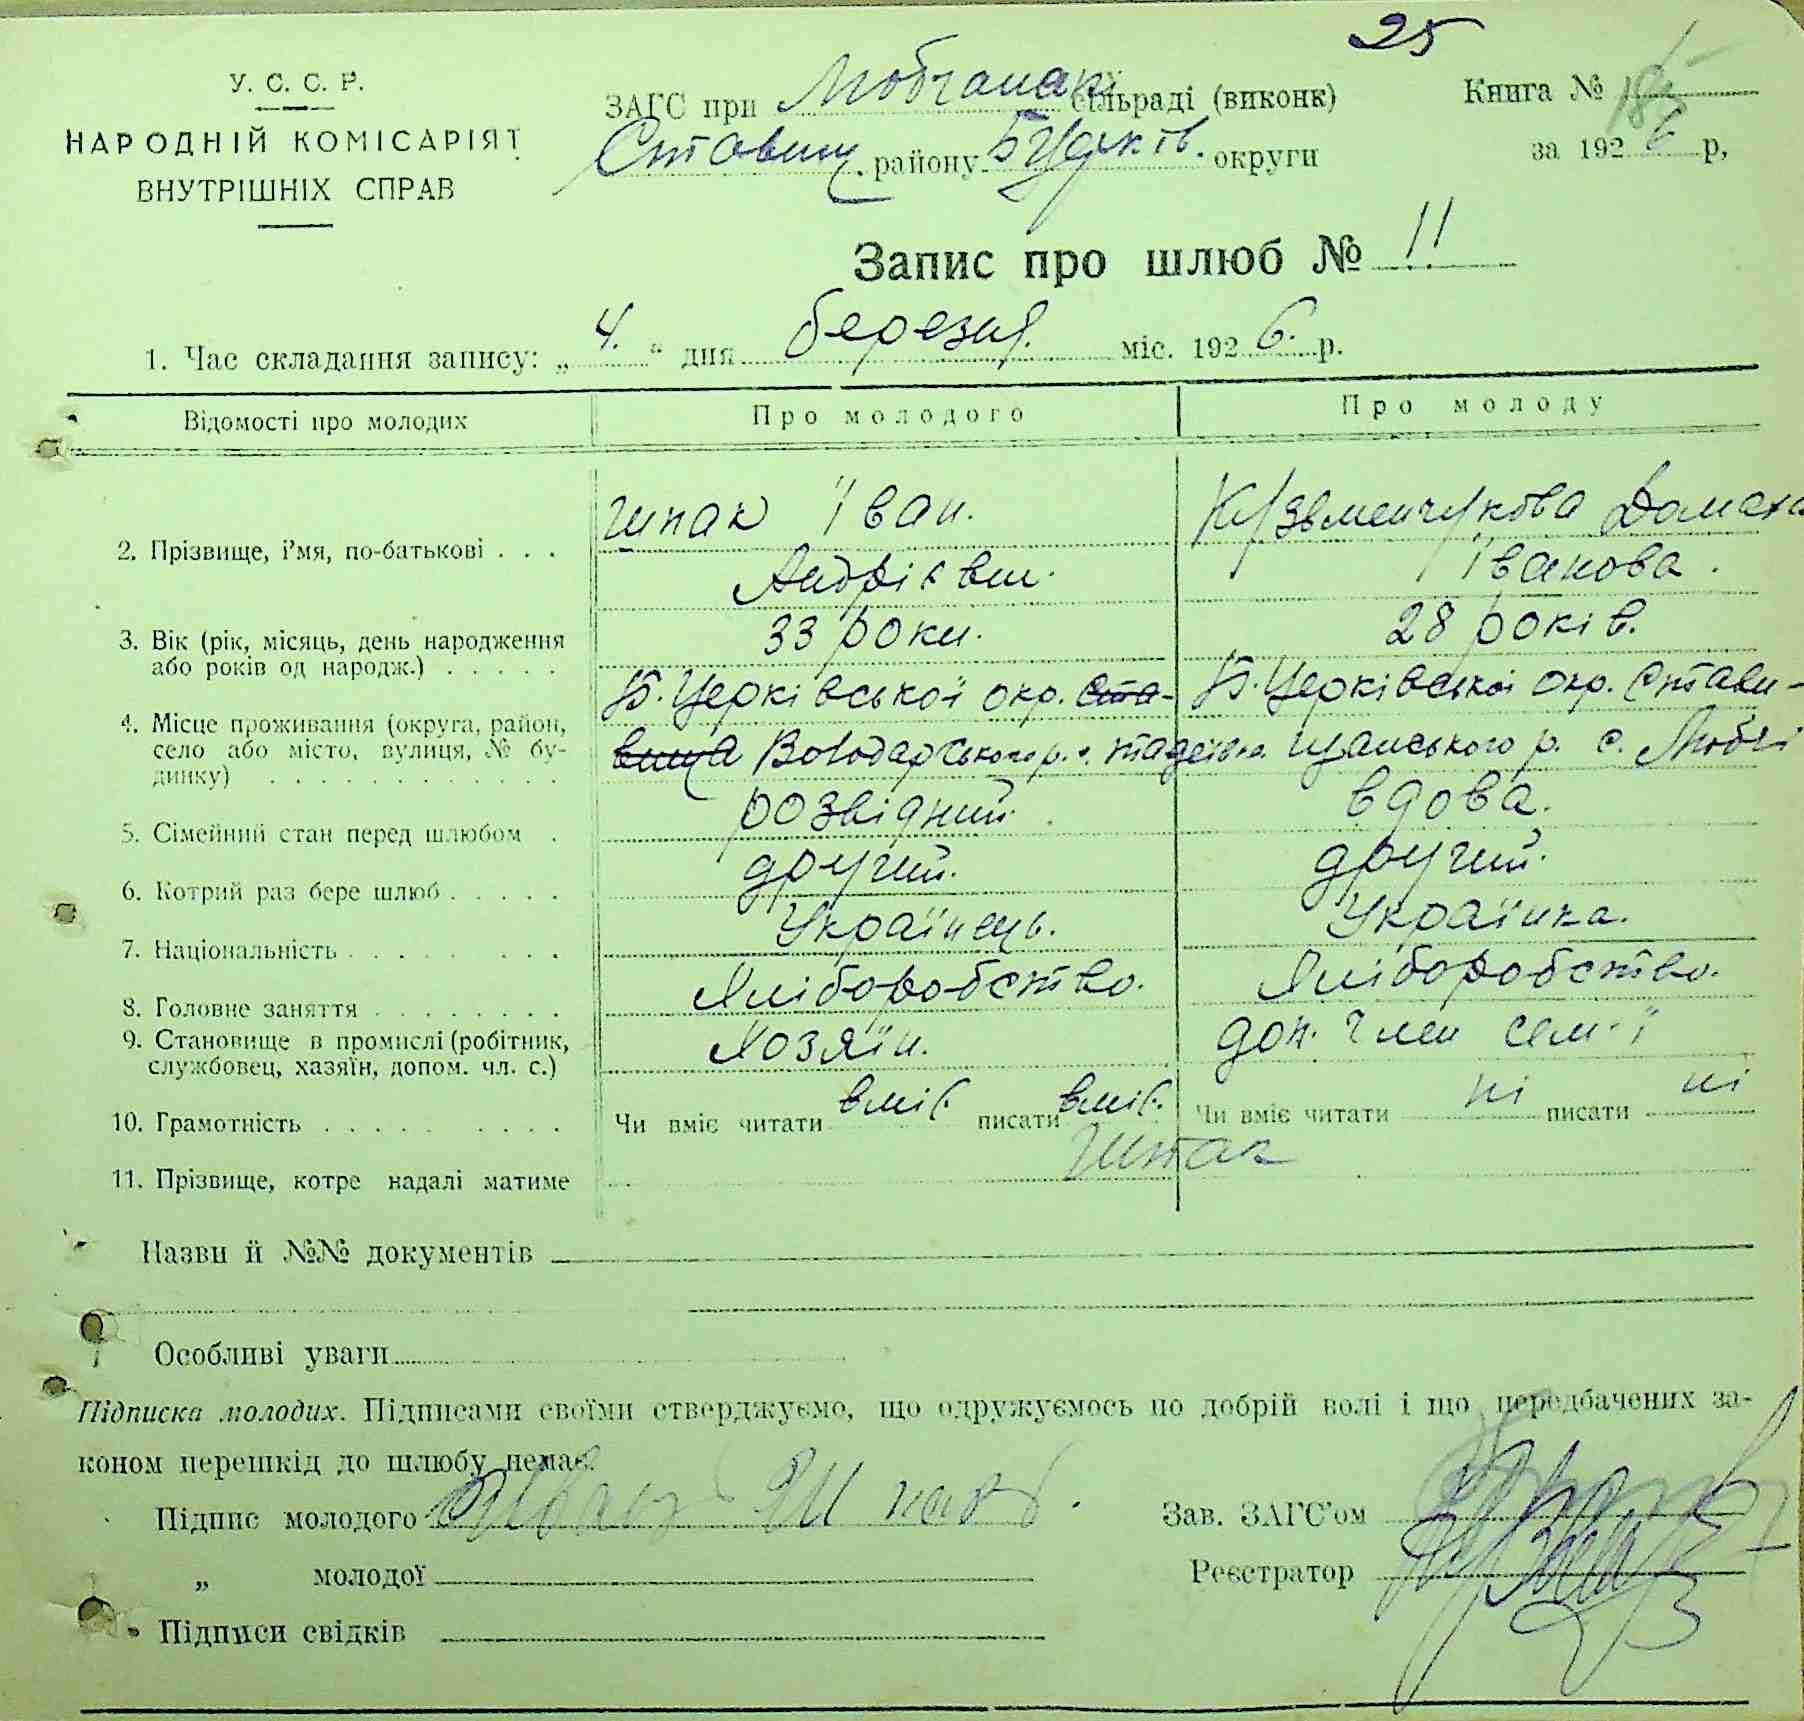 25
У. С. С. Р.
НАРОДНІЙ КОМІСАРІЯТ
ВНУТРІШНІХ СПРАВ
ЗАГС при сільраді (виконк) Книга №
Ставищ. району Б Церків. округи за 1926 р,
Запис про шлюб № 11
1. Час складання запису: „ 4. “ дня березня. міс. 1926. р.
Відомості про молодих Про молодого Про молоду
2. Прізвище, і'мя, по-батькові . . . Шпак Іван. Кузьменчукова Домаха
Андрієвич. Іванова.
3. Вік (рік, місяць, день народження 33 роки. 28 років.
або років од народж.) . . . . .
4. Місце проживання (округа, район, Б. Церківської окр. Ста- Б. Церківської окр. Стави-
село або місто, вулиця, № бу- вища Володарського р. с. щанського р. с. Любчі
динку) . . . . . . . . . . . .
5. Сімейний стан перед шлюбом . розвідний. вдова.
6. Котрий раз бере шлюб . . . . . другий. другий.
7. Національність . . . . . . . . Українець. Українка.
8. Головне заняття . . . . . . . . Хліборобство. Хліборобство.
9. Становище в промислі (робітник, Хозяїн. доп. член сем'ї
службовец, хазяїн, допом. чл. с.)
10. Грамотність . . . . . . . . . Чи вміє читати вміє. писати вміє. Чи вміє читати ні писати ні
11. Прізвище, котре надалі матиме Шпак
Назви й №№ документів
Особливі уваги
Підписка молодих. Підписами своїми стверджуємо, що одружуємось по добрій волі і що передбачених за-
коном перешкід до шлюбу немає.
Підпис молодого Иван Шпак Зав. ЗАГС'ом
„ молодої Реєстратор
Підписи свідків